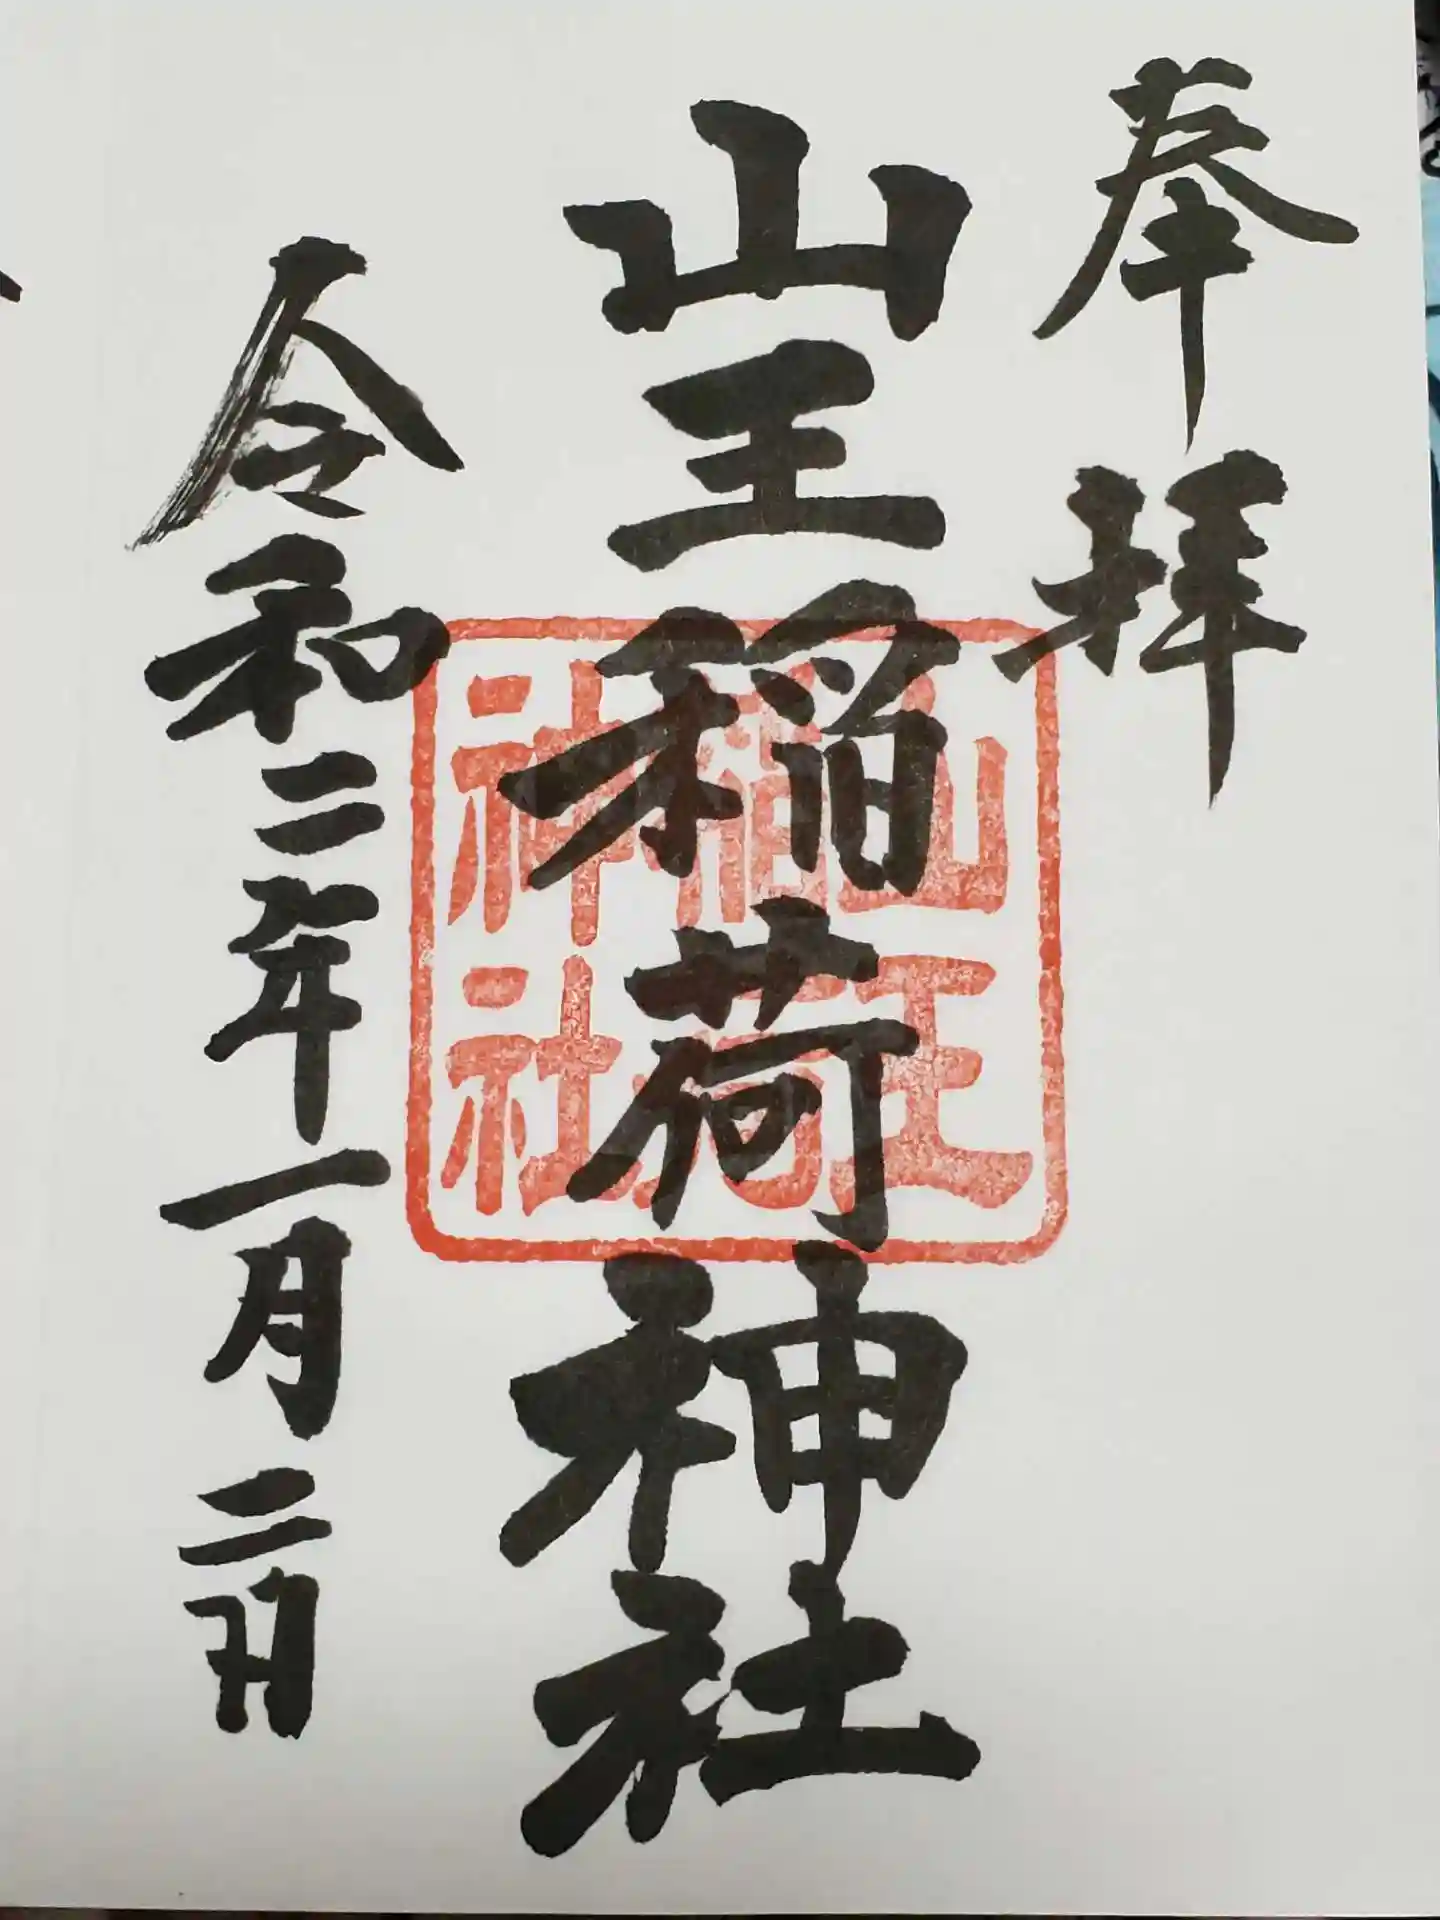 奉拝
山王稲荷神社
令和二年一月二日
山王
稲荷
神社